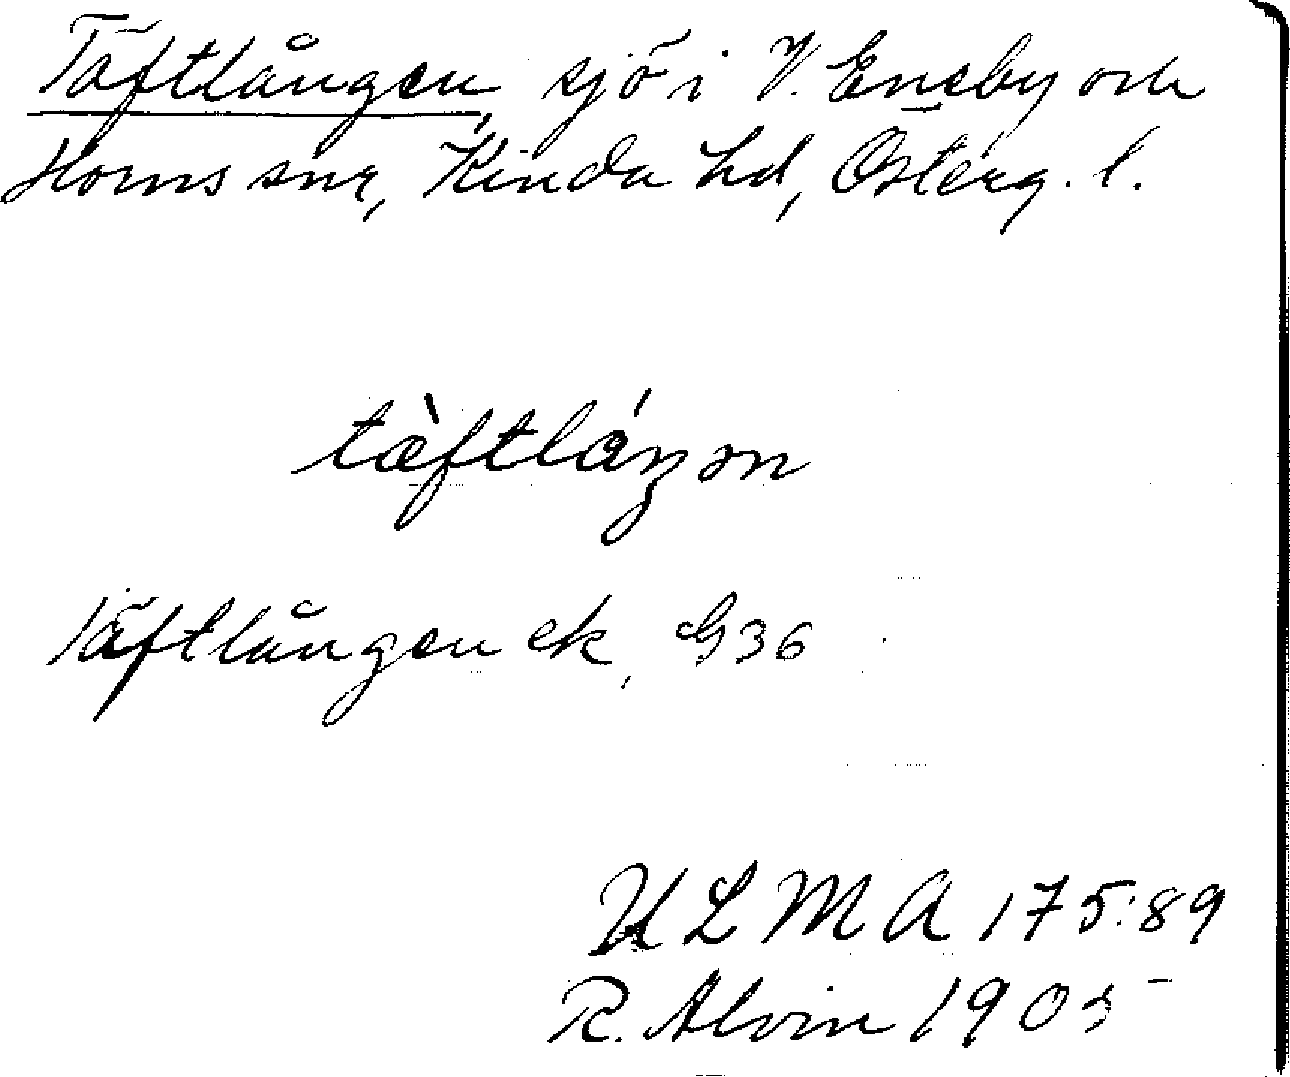 Täftlången, sjö i V. Eneby och
Horns snr, Kinda hd, Österg. l.
tæ̀ftláŋən
Täftlången ek, G36
ULMA 175:89
R. Alvin 1905